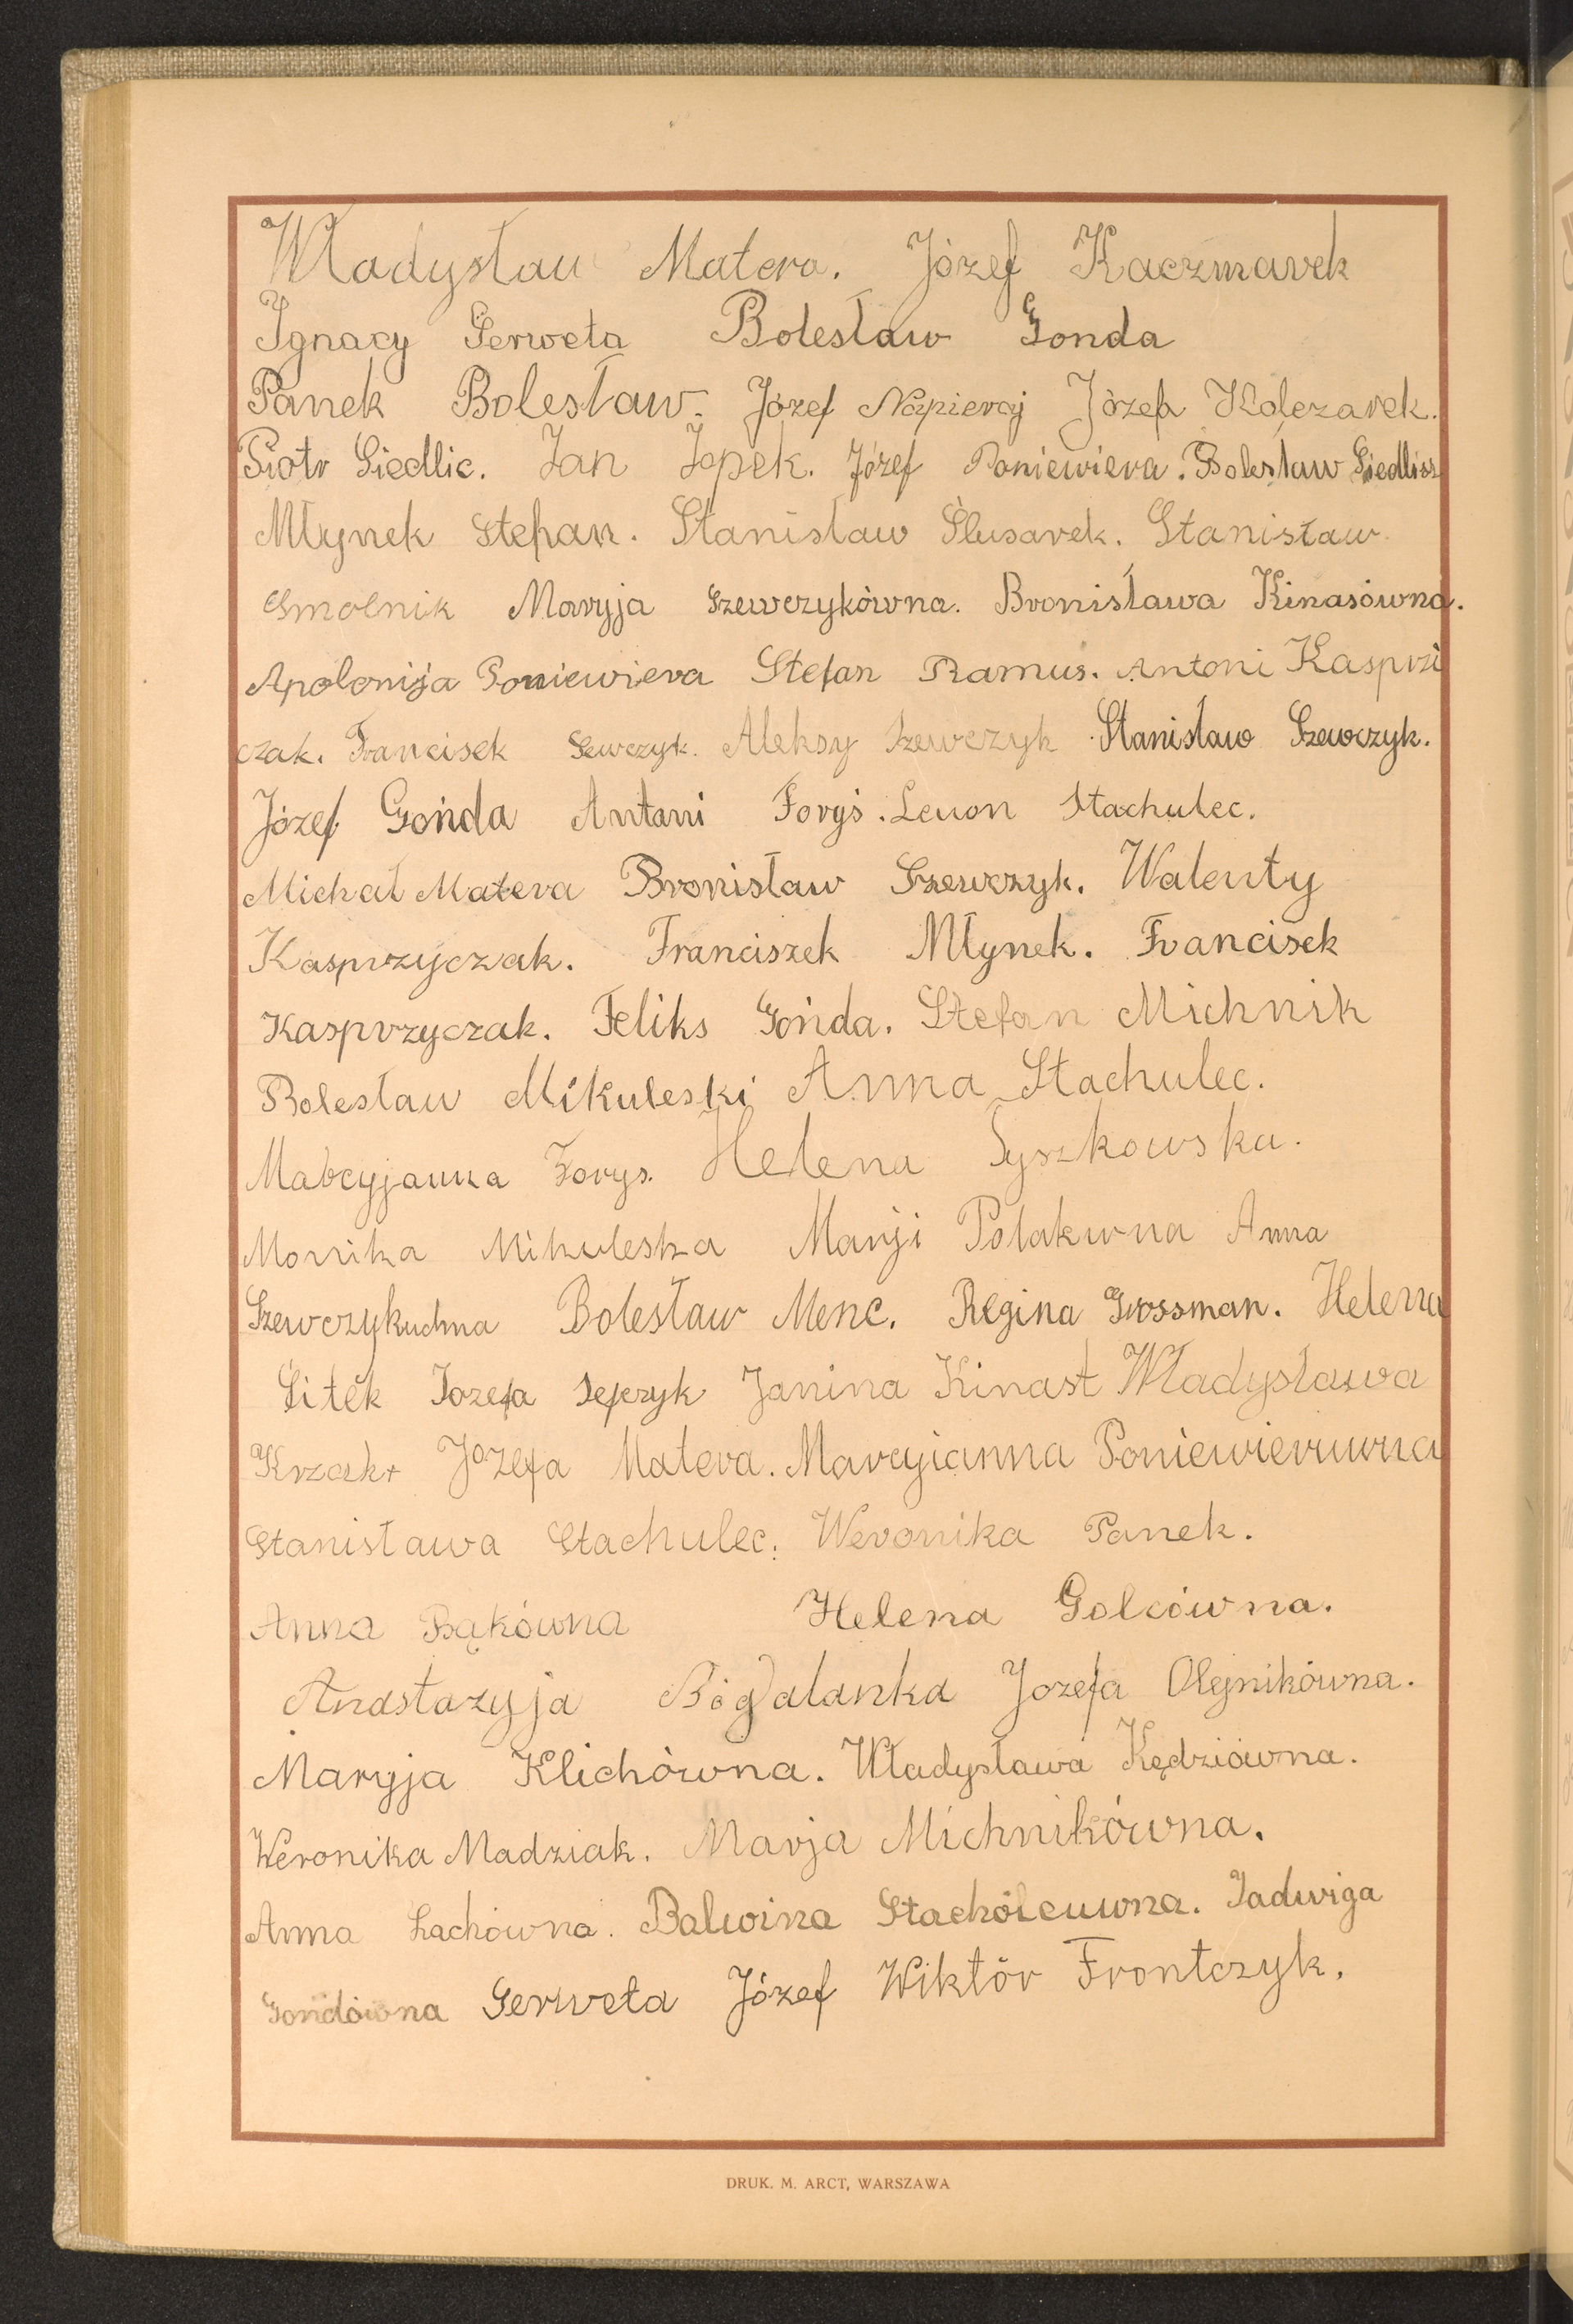 Władysław Matera. Józef Kaczmarek
Ignacy Serweta Bolesław Gonda
Panek Bolesław. Józef Napieraj Józefa Kolczarek.
Piotr Siedlic. Jan Jopek. Józef Poniewiera. Bolesław Siedlisz
Młynek Stefan. Stanisław Ślusarek. Stanisław
Smolnik Maryja Szewczykówna. Bronisława Kinasówna.
Apolonija Poniewiera Stefan Ramus. Antoni Kasprzi
czak. Francisek Sewczyk. Aleksy Szewczyk Stanisław Szewczyk.
Józef Gońda Antani Foryś. Leuon Stachulec.
Michał Matera Bronisław Szewczyk. Walenty
Kasprzyczak. Franciszek Młynek. Francisek
Kasprzyczak. Feliks Gońda. Stefan Michnik
Bolesław Mikuleski Anna Stachulec.
Marcyjanna Forys. Helena Tyszkowska.
Monika Mikuleska Maryji Polakwna Anna
Szewczykuchna Bolesław Menc. Regina Grossman. Helena
Sitek Jozefa Sefczyk Janina Kinast Władysława
Krzak Józefa Matera. Marcyjanna Poniewieruwna
Stanisława Stachulec. Weronika Panek.
Anna Bąkówna Helena Golcówna.
Anastazyja Bigdalanka Jozefa Olejnikówna.
Maryja Klichówna. Władysława Kędziówna.
Weronika Madziak. Marja Michnikówna.
Anna Lachówna. Balwina Stachólcuwna. Jadwiga
Gońdówna Serweta Józef Wiktór Frontczyk.
DRUK. M. ARCT, WARSZAWA